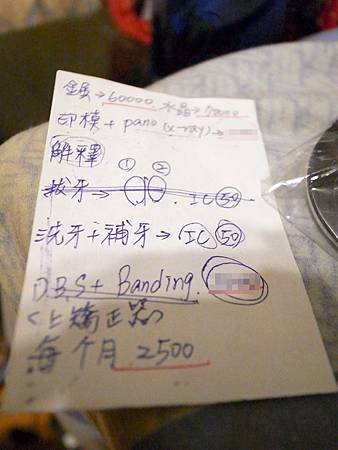 鐵→60000. 水晶→70000
印模 + pano (x-ray) →
解釋
① ②
拔牙→ . IC 50
洗牙+補牙→ IC 50
D.B.S + Banding.
<上矯正器>
每个月 2500